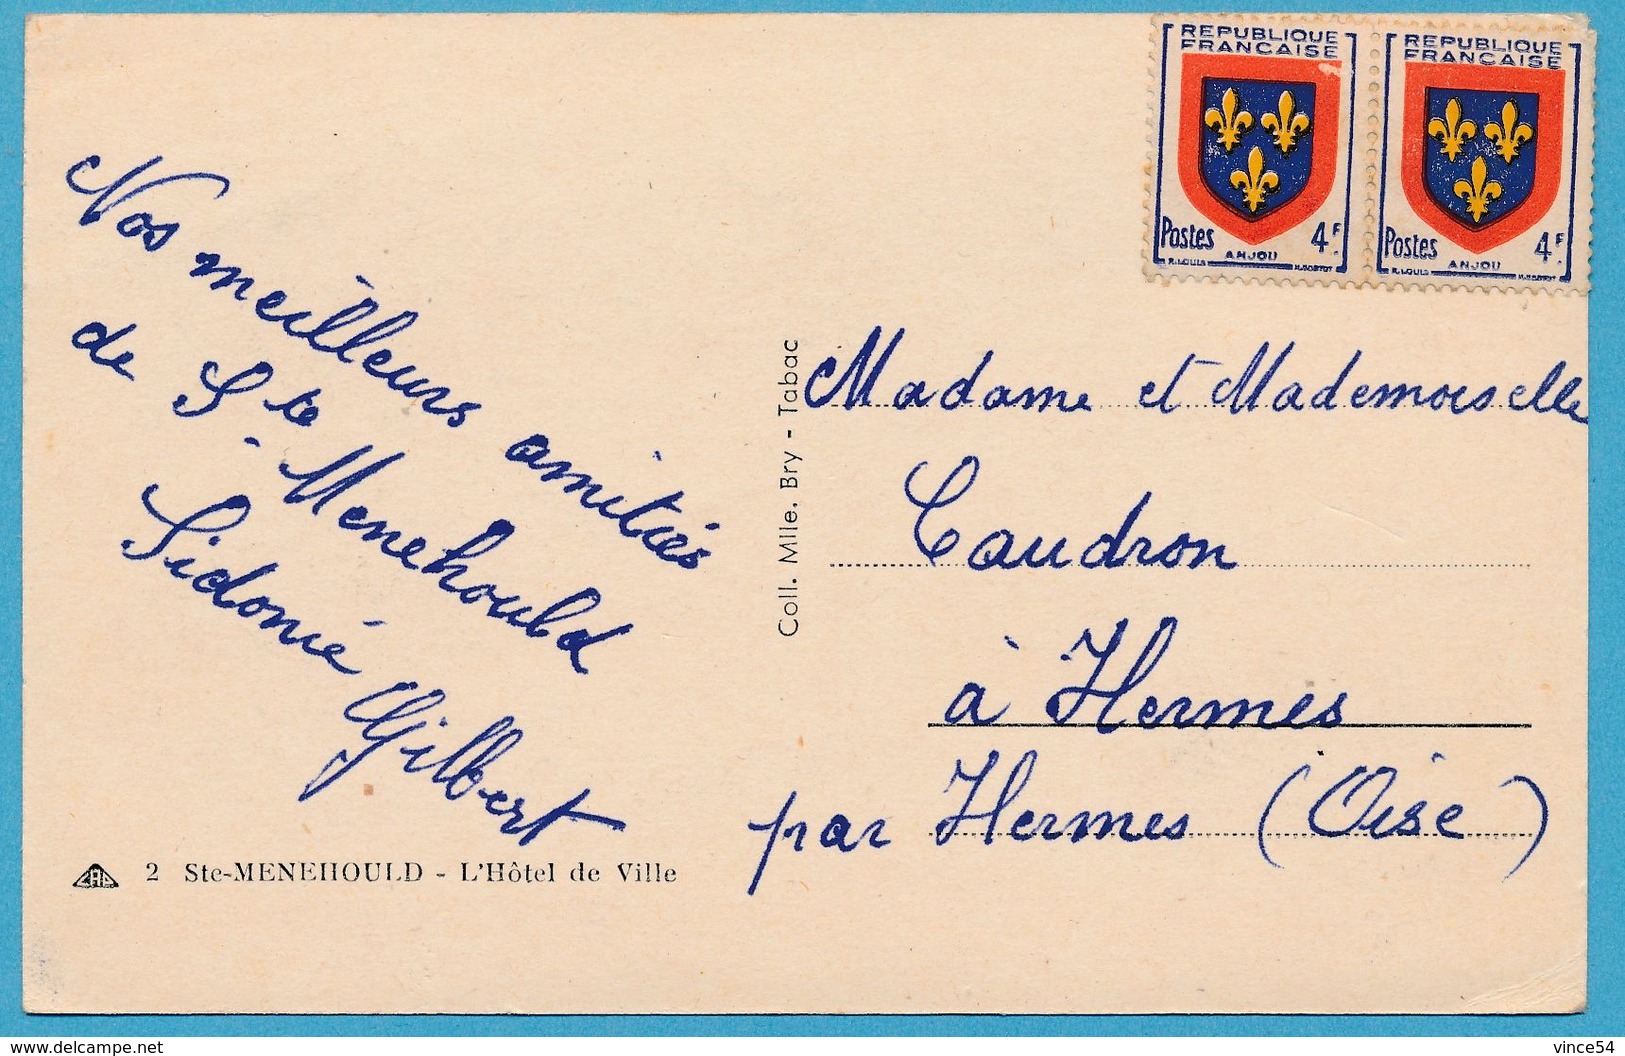 REPUBLIQUE
FRANCAISE
Postes 4F
ANJOU
R.LOUIS
REPUBLIQUE
FRANCAISE
Postes 4F
ANJOU
R.LOUIS
Nos meilleurs amitiés
de Ste-Menehould
Sidonié Gilbert
Coll. Mlle. Bry - Tabac
Madame et Mademoiselle
Caudron
à Hermes
par Hermes (Oise)
2 Ste-MENEHOULD - L'Hôtel de Ville
delcampe.net
vince54